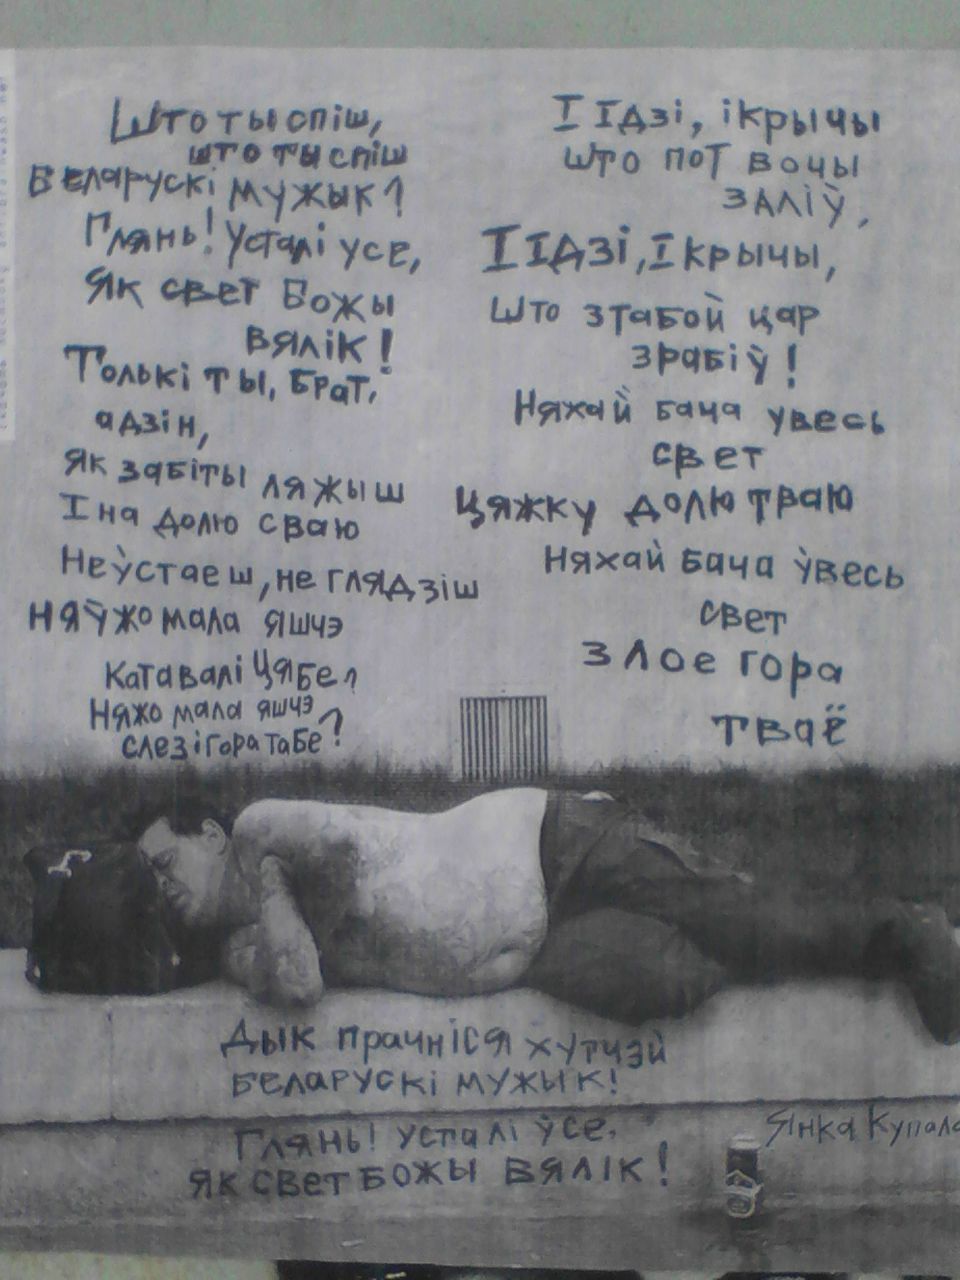 Што ты спіш,
што ты спіш
Беларускі мужык?
Глянь! Усталі усе,
Як свет Божы
вялік!
Толькі ты, брат,
адзін,
Як забіты ляжыш
І на долю сваю
Не ўстаеш, не глядзіш
Няўжо мала яшчэ
Катавалі Цябе?
Няжо мала яшчэ
слез і гора табе?
І ідзі, і крычы
што пот вочы
заліў,
І ідзі, і крычы,
што з табой цар
зрабіў!
Няхай бача увесь
свет
цяжку долю тваю
Няхай бача ўвесь
свет
злое гора
тваё
Дык прачніся хутчэй
Беларускі мужык!
Глянь! усталі ўсе,
як свет Божы вялік!
Янка Купала